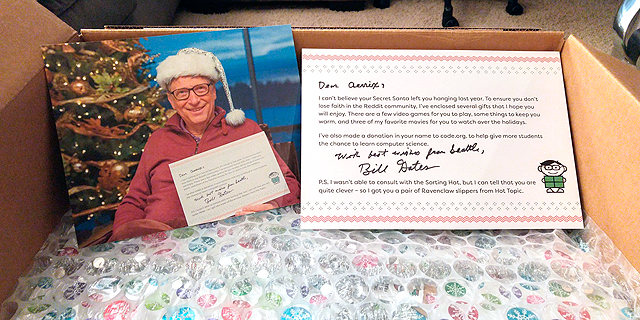 Dear Aerrix,
I can't believe your Secret Santa left you hanging last year. To ensure you don't
lose faith in the Reddit community, I've enclosed several gifts that I hope you
will enjoy. There are a few video games for you to play, some things to keep you
warm, and three of my favorite movies for you to watch over the holidays.
I've also made a donation in your name to code.org, to help give more students
the chance to learn computer science.
best wishes from Seattle,
Bill Gates
P.S. I wasn't able to consult with the Sorting Hat, but I can tell that you are
quite clever – so I got you a pair of Ravenclaw slippers from Hot Topic.